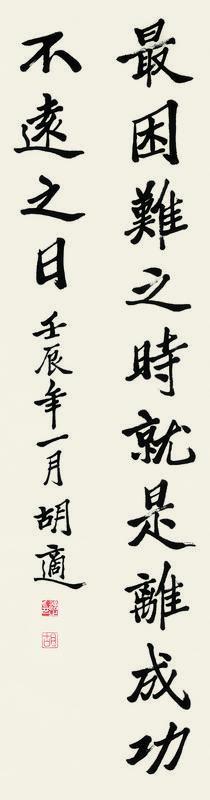 最困難之時就是離成功
不遠之日 壬辰年一月 胡適
胡